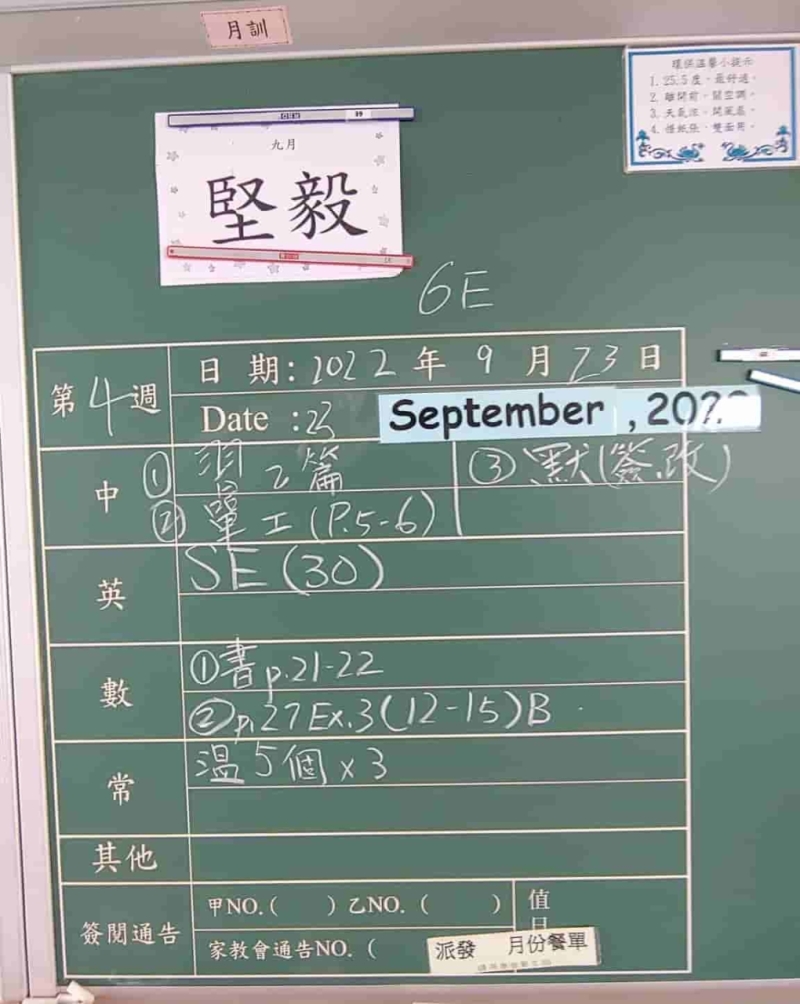 月訓
環保溫馨小提示
1. 25.5度,最舒適。
2. 離開前,關空調。
3. 天氣涼,開風扇。
4. 惜紙張,雙面用。
九月
堅毅
6E
第4週
日 期:2022年9月23日
Date :23 September , 202
中
①習乙篇
③默(簽.改)
②單工(P.5-6)
英
SE(30)
數
①書p.21-22
②p.27Ex.3(12-15)B
常
溫5個x3
其他
簽閱通告
甲NO.( )乙NO.( )
值日
家教會通告NO.(
派發 月份餐單